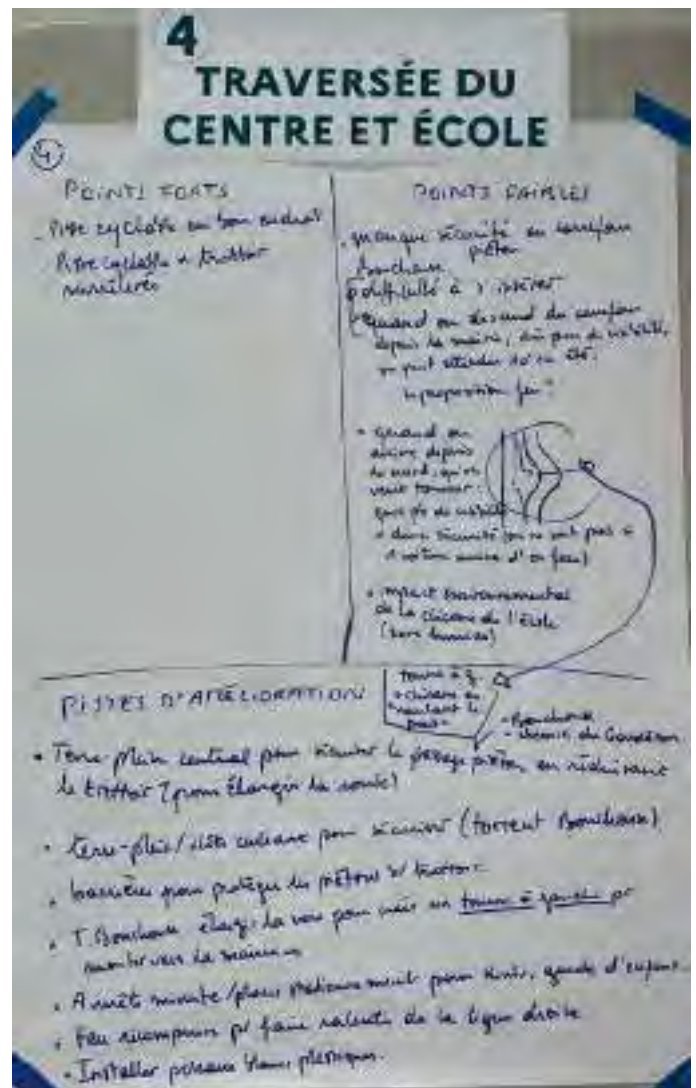 4
TRAVERSÉE DU
CENTRE ET ÉCOLE
4
POINTS FORTS
- Piste cyclable en bon endroit
Piste cyclable + trottoir
POINTS FAIBLES
- manque sécurité au carrefour
piéton
Bouchouse
difficulté à s'insérer
quand on descend du carrefour
depuis la mairie, pas de visibilité,
on peut attendre en été.
proposition feu ?
• quand on
arrive depuis
le nord, qu'on
veut tourner :
pas de visibilité
sécurité (on ne voit pas si
1 voiture arrive d'en face)
• impact environnemental
de la chicane de l'école
PISTES D'AMÉLIORATION
tourne à g.
+ chicane en
- Bouchouse
- chemin du
• Terre-plein central pour sécuriser le passage piéton en réduisant
le trottoir ? (pour élargir la route)
• terre-plein / pour sécuriser (torrent Bouchouse)
• barrières pour protéger les piétons s/ trottoir
• T. Bouchouse élargir la voie pour créer un tourne à gauche pr
monter vers la mairie
• Arrêts minute / places stationnement pour, garde d'enfants...
• Feu récompense pr faire ralentir de la ligne droite
• Installer poteaux blancs plastiques.